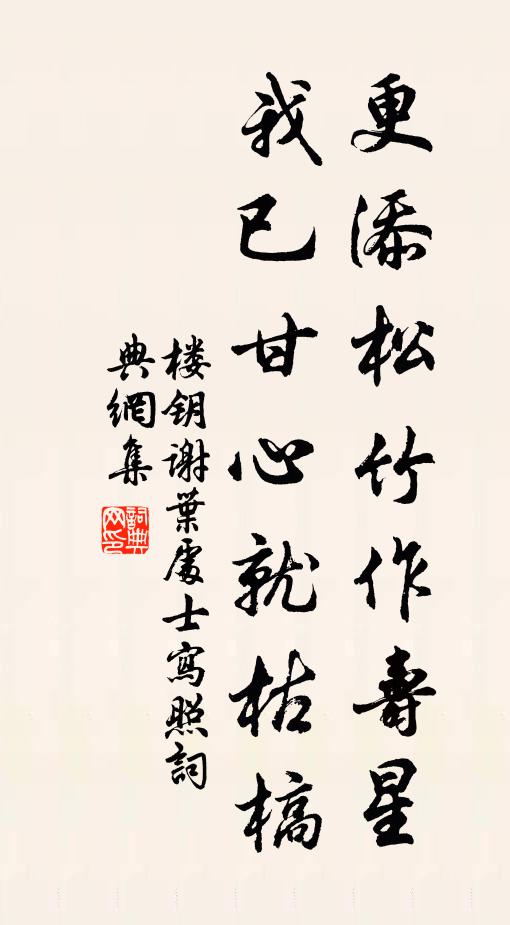 更添松竹作壽星
我已甘心就枯槁
楼钥谢葉處士寫照詞
典網集
詞典网印